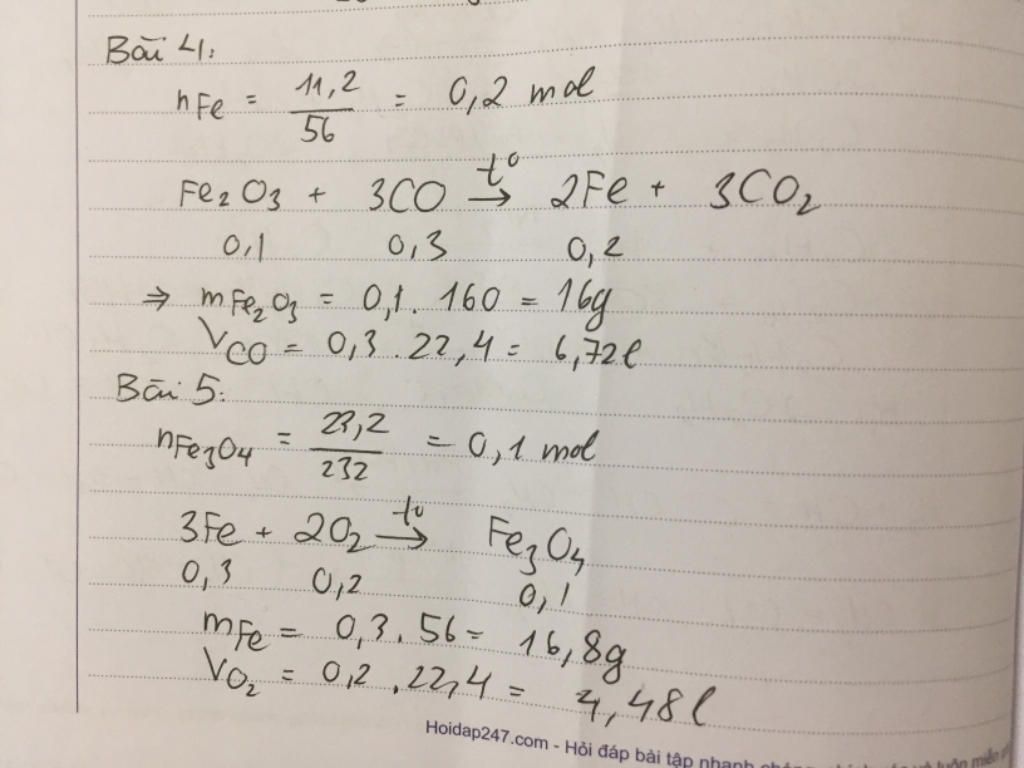 Bài 4:
nFe = 11,2/56 = 0,2 mol
Fe2O3 + 3CO t° → 2Fe + 3CO2
0,1 0,3 0,2
⇒ mFe2O3 = 0,1 . 160 = 16g
VCO = 0,3 . 22,4 = 6,72l
Bài 5:
nFe3O4 = 23,2/232 = 0,1 mol
3Fe + 2O2 t° → Fe3O4
0,3 0,2 0,1
mFe = 0,3 . 56 = 16,8g
VO2 = 0,2 . 22,4 = 4,48l
Hoidap247.com - Hỏi đáp bài tập nhanh chóng